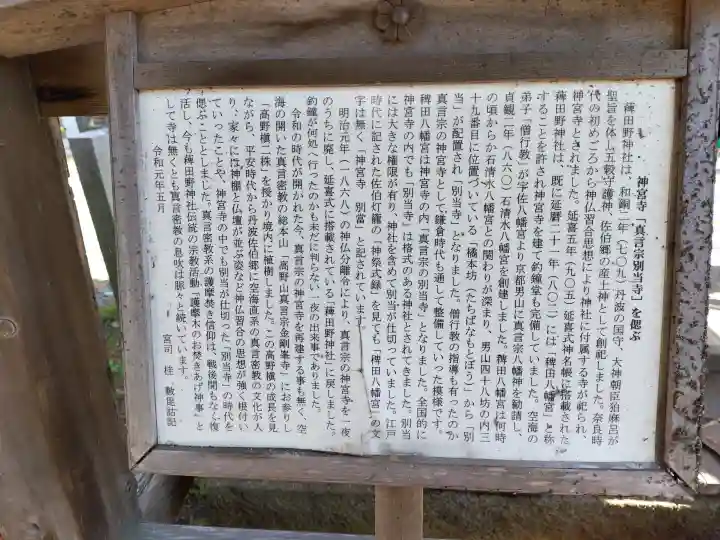 神宮寺「真言宗別当寺」を偲ぶ
薭田野神社は、和銅二年（七〇九）丹波の国守、大神朝臣狛麻呂が
聖旨を体し五穀守護神、佐伯郷の産土神として創祀しました。奈良時
代の初めごろから神仏習合思想により神社に付属する寺が祀られ、
神宮寺とされました。延喜五年（九〇五）延喜式神名帳に搭載された
薭田野神社は、既に延暦二十一年（八〇二）には「稗田八幡宮」と称
することを許され神宮寺を建て釣鐘堂も完備していました。空海の
弟子（僧行教）が宇佐八幡宮より京都男山に真言宗八幡神を勧請し、
貞観二年（八六〇）石清水八幡宮を創建しました。稗田八幡宮は何時
の頃からか石清水八幡宮との関わりが深まり、男山四十八坊の内三
十九番目に位置づいている「橘本坊（たちばなもとぼう）」から「別
当」が配置され「別当寺」となりました。僧行教の指導も有ったのか
真言宗の神宮寺として鎌倉時代も通して整備していった模様です。
稗田八幡宮は神宮寺の内「真言宗の別当寺」となりました。全国的に
神宮寺の内でも「別当寺」は格式のある神社とされてきました。別当
には大きな権限が有り、神社を含めて別当が仕切っていました。江戸
時代に記された佐伯灯籠の「神祭式録」を見ても「稗田八幡宮」の文
字は無く「神宮寺　別當」と記されています。
明治元年（一八六八）の神仏分離令により、真言宗の神宮寺を一夜
のうちに廃し、延喜式に搭載されている「薭田野神社」に戻しました。
釣鐘が何処へ行ったのかも未だに判らない一夜の出来事でありました。
令和の時代が開かれた今、真言宗の神宮寺を再建する事も無く、空
海の開いた真言密教の総本山「高野山真言宗金剛峯寺」にお参りし
「高野槇二株」を授かり境内に植樹しました。この高野槇の成長を見
ながら、平安時代から丹波佐伯郷に空海直系の真言密教の文化が入
り、家々には神棚と仏壇が並ぶ姿など神仏習合の思想が強く根付い
ていったことや、神宮寺の中でも別当が仕切った「別当寺」の時代を
偲ぶこととしました。真言密教系の護摩焚き信仰は、戦後間もなく復
活し、今も薭田野神社伝統の宗教活動「護摩木のお焚きあげ神事」と
して寺は無くとも真言密教の息吹は脈々と続いています。
令和元年五月
宮司　桂　敏佳　誌記